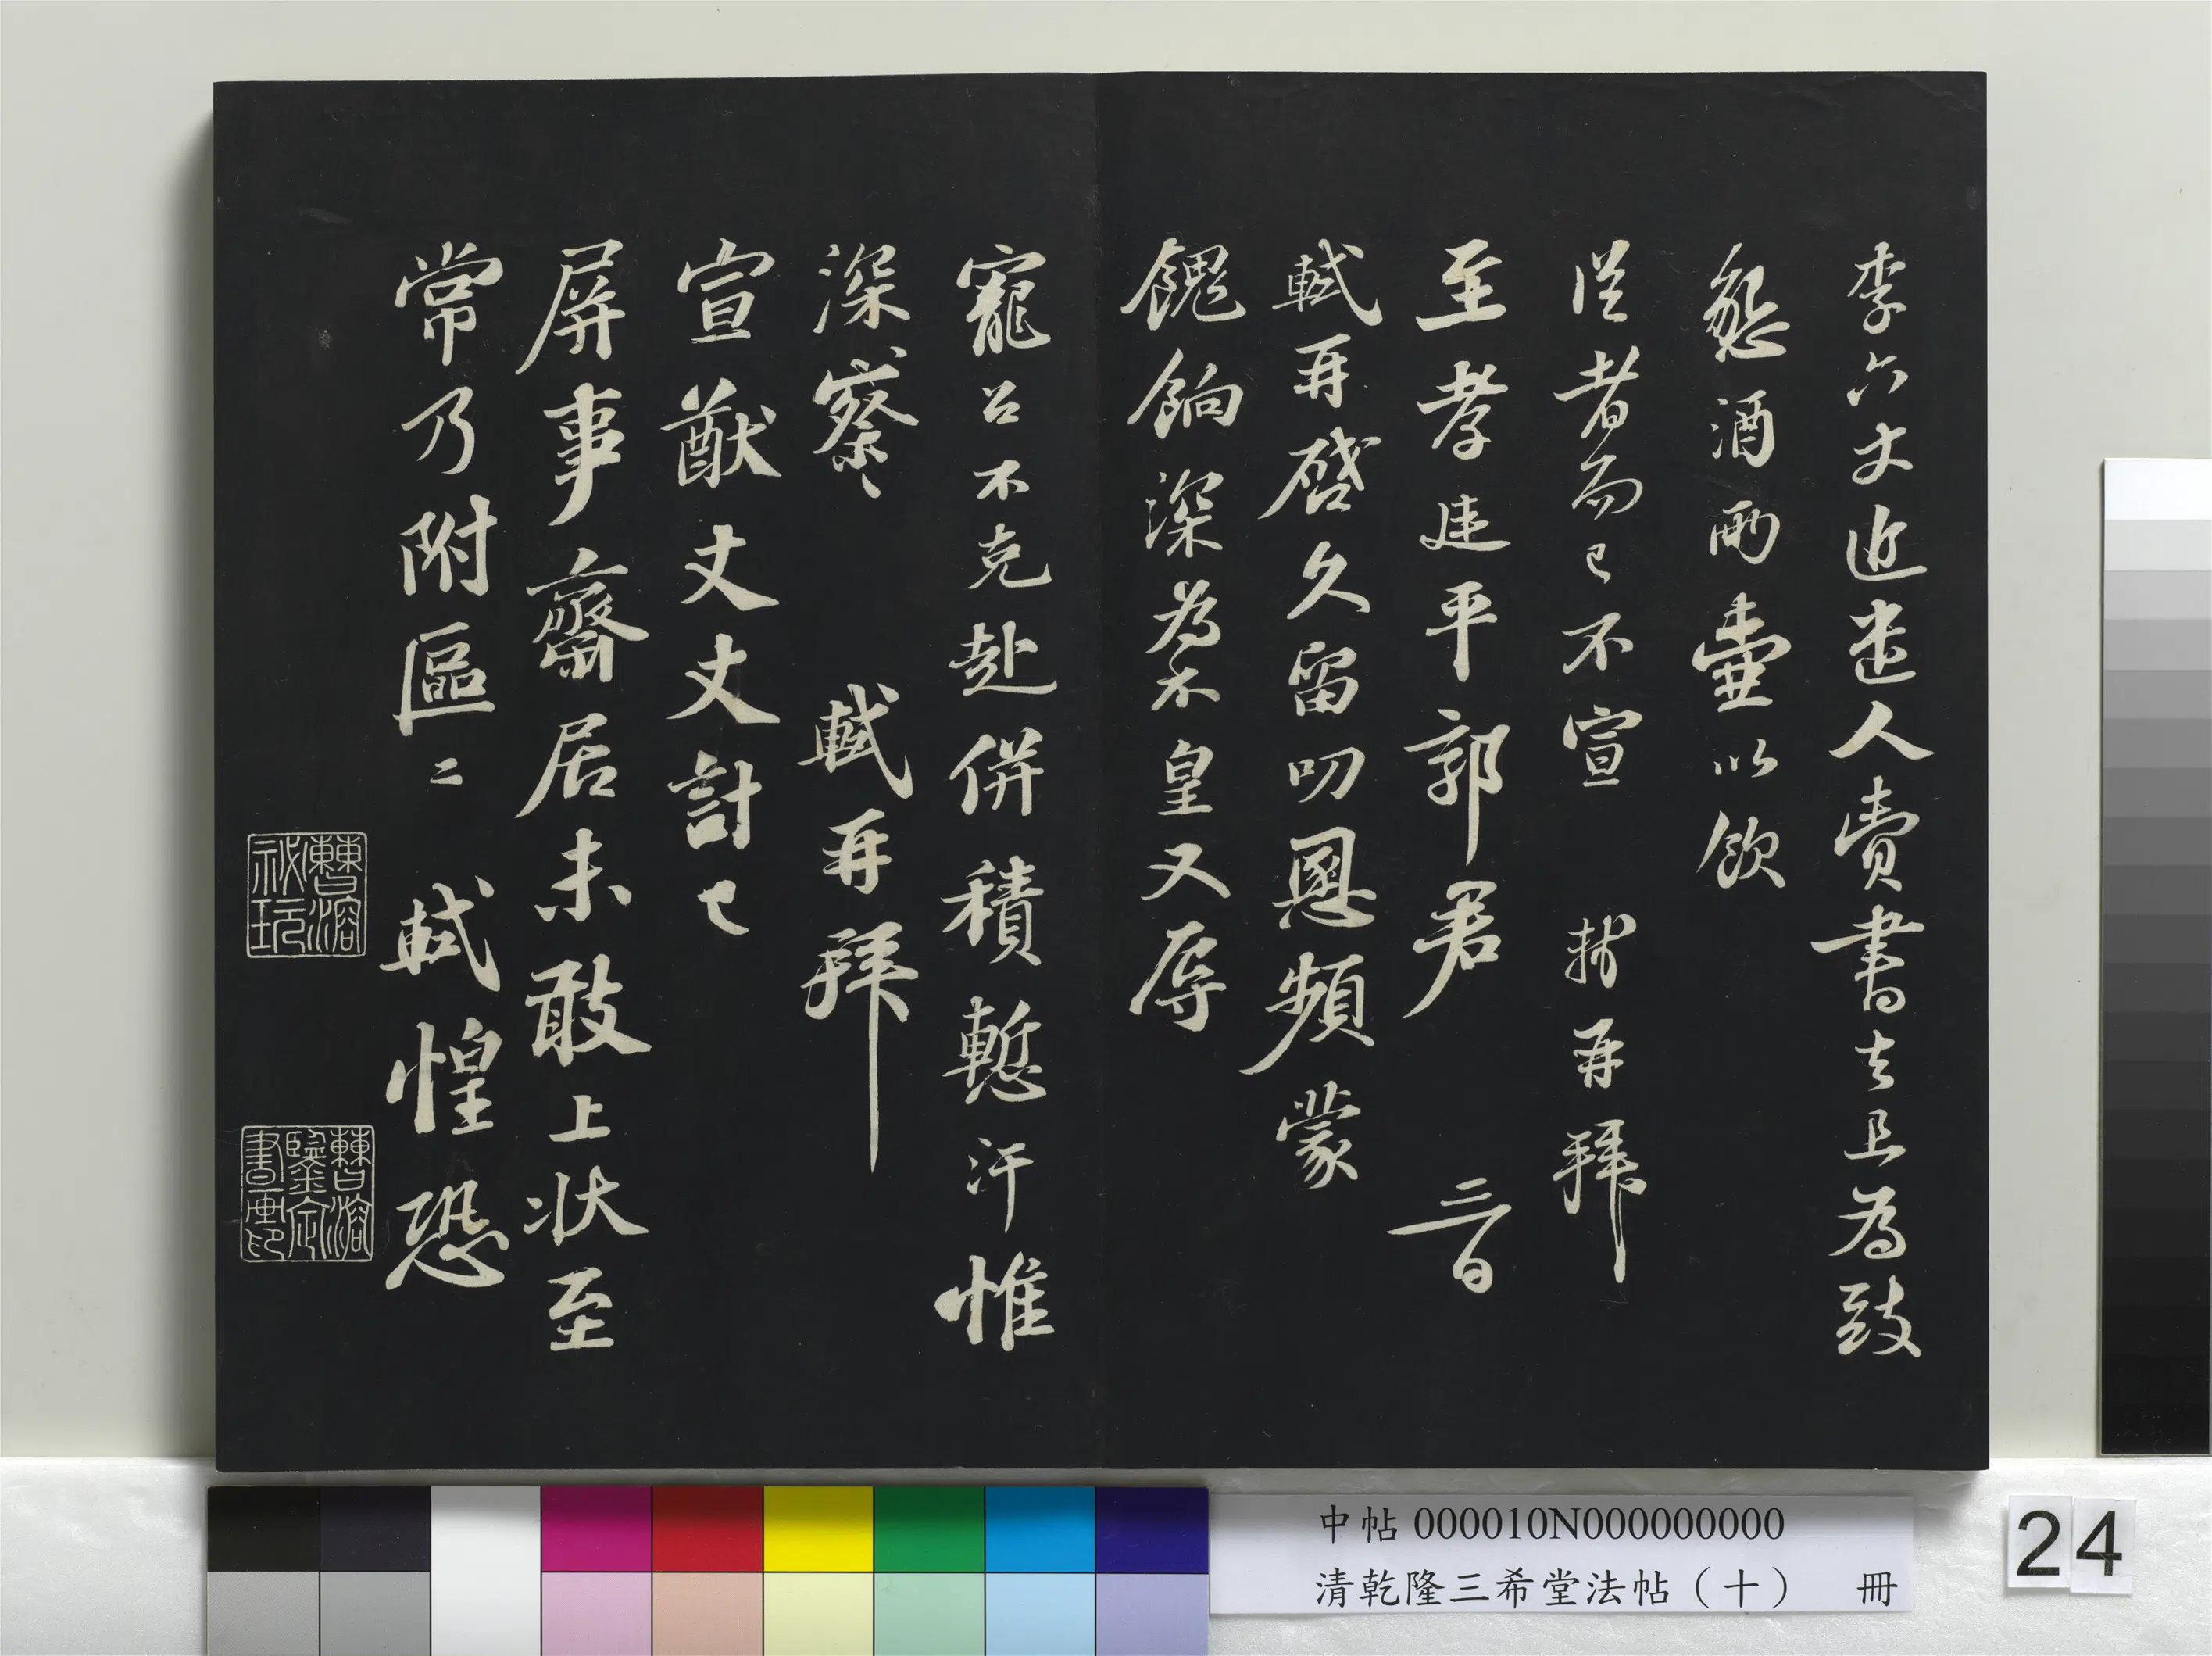 李六丈近遣人賫書去且為致
懇酒兩壺以飲
從者而已不宣 軾再拜
至孝廷平郭君 三日
軾再啓久留叨恩頻蒙
餽餉深為不皇又辱
寵召不克赴併積慙汗惟
深察〻 軾再拜
宣猷丈丈計已
屏事齋居未敢上狀至
常乃附區〻 軾惶恐
曹溶秘玩
曹溶鑒定書畫印
中帖 000010N000000000
清乾隆三希堂法帖（十） 冊
24